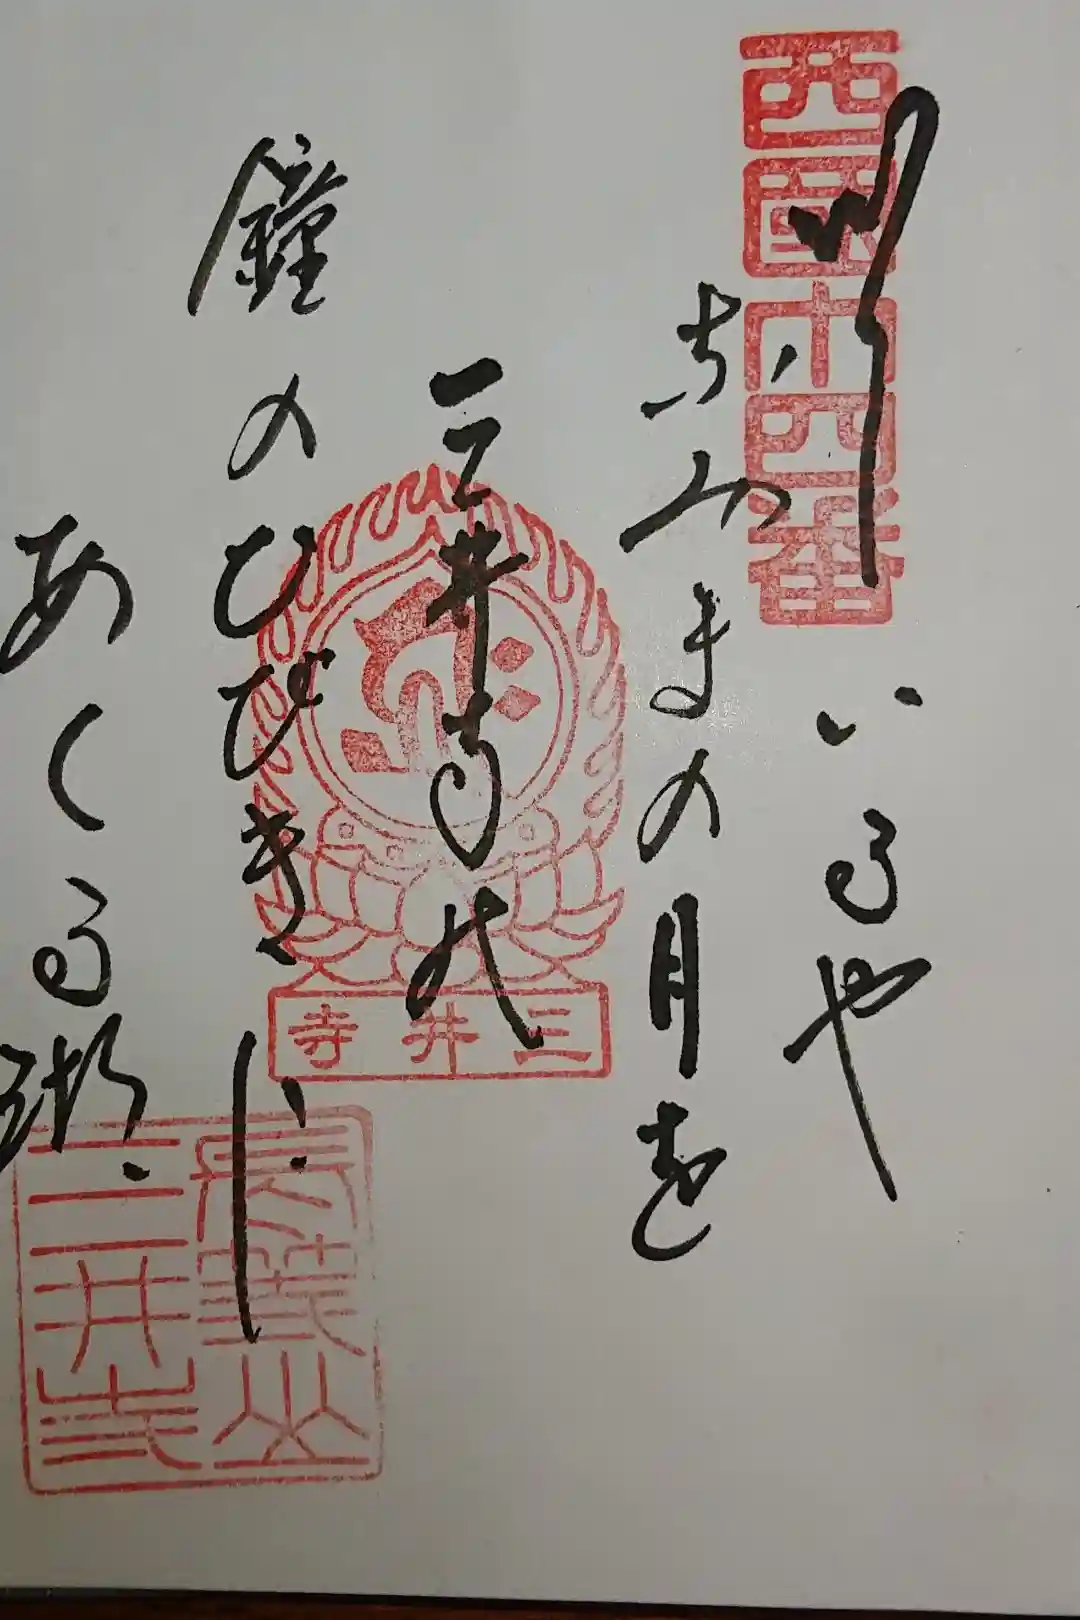 西國十四番
いるや
なみまの月を
三井寺の
鐘のひびきに
あくる湖
三井寺
長等山
三井寺